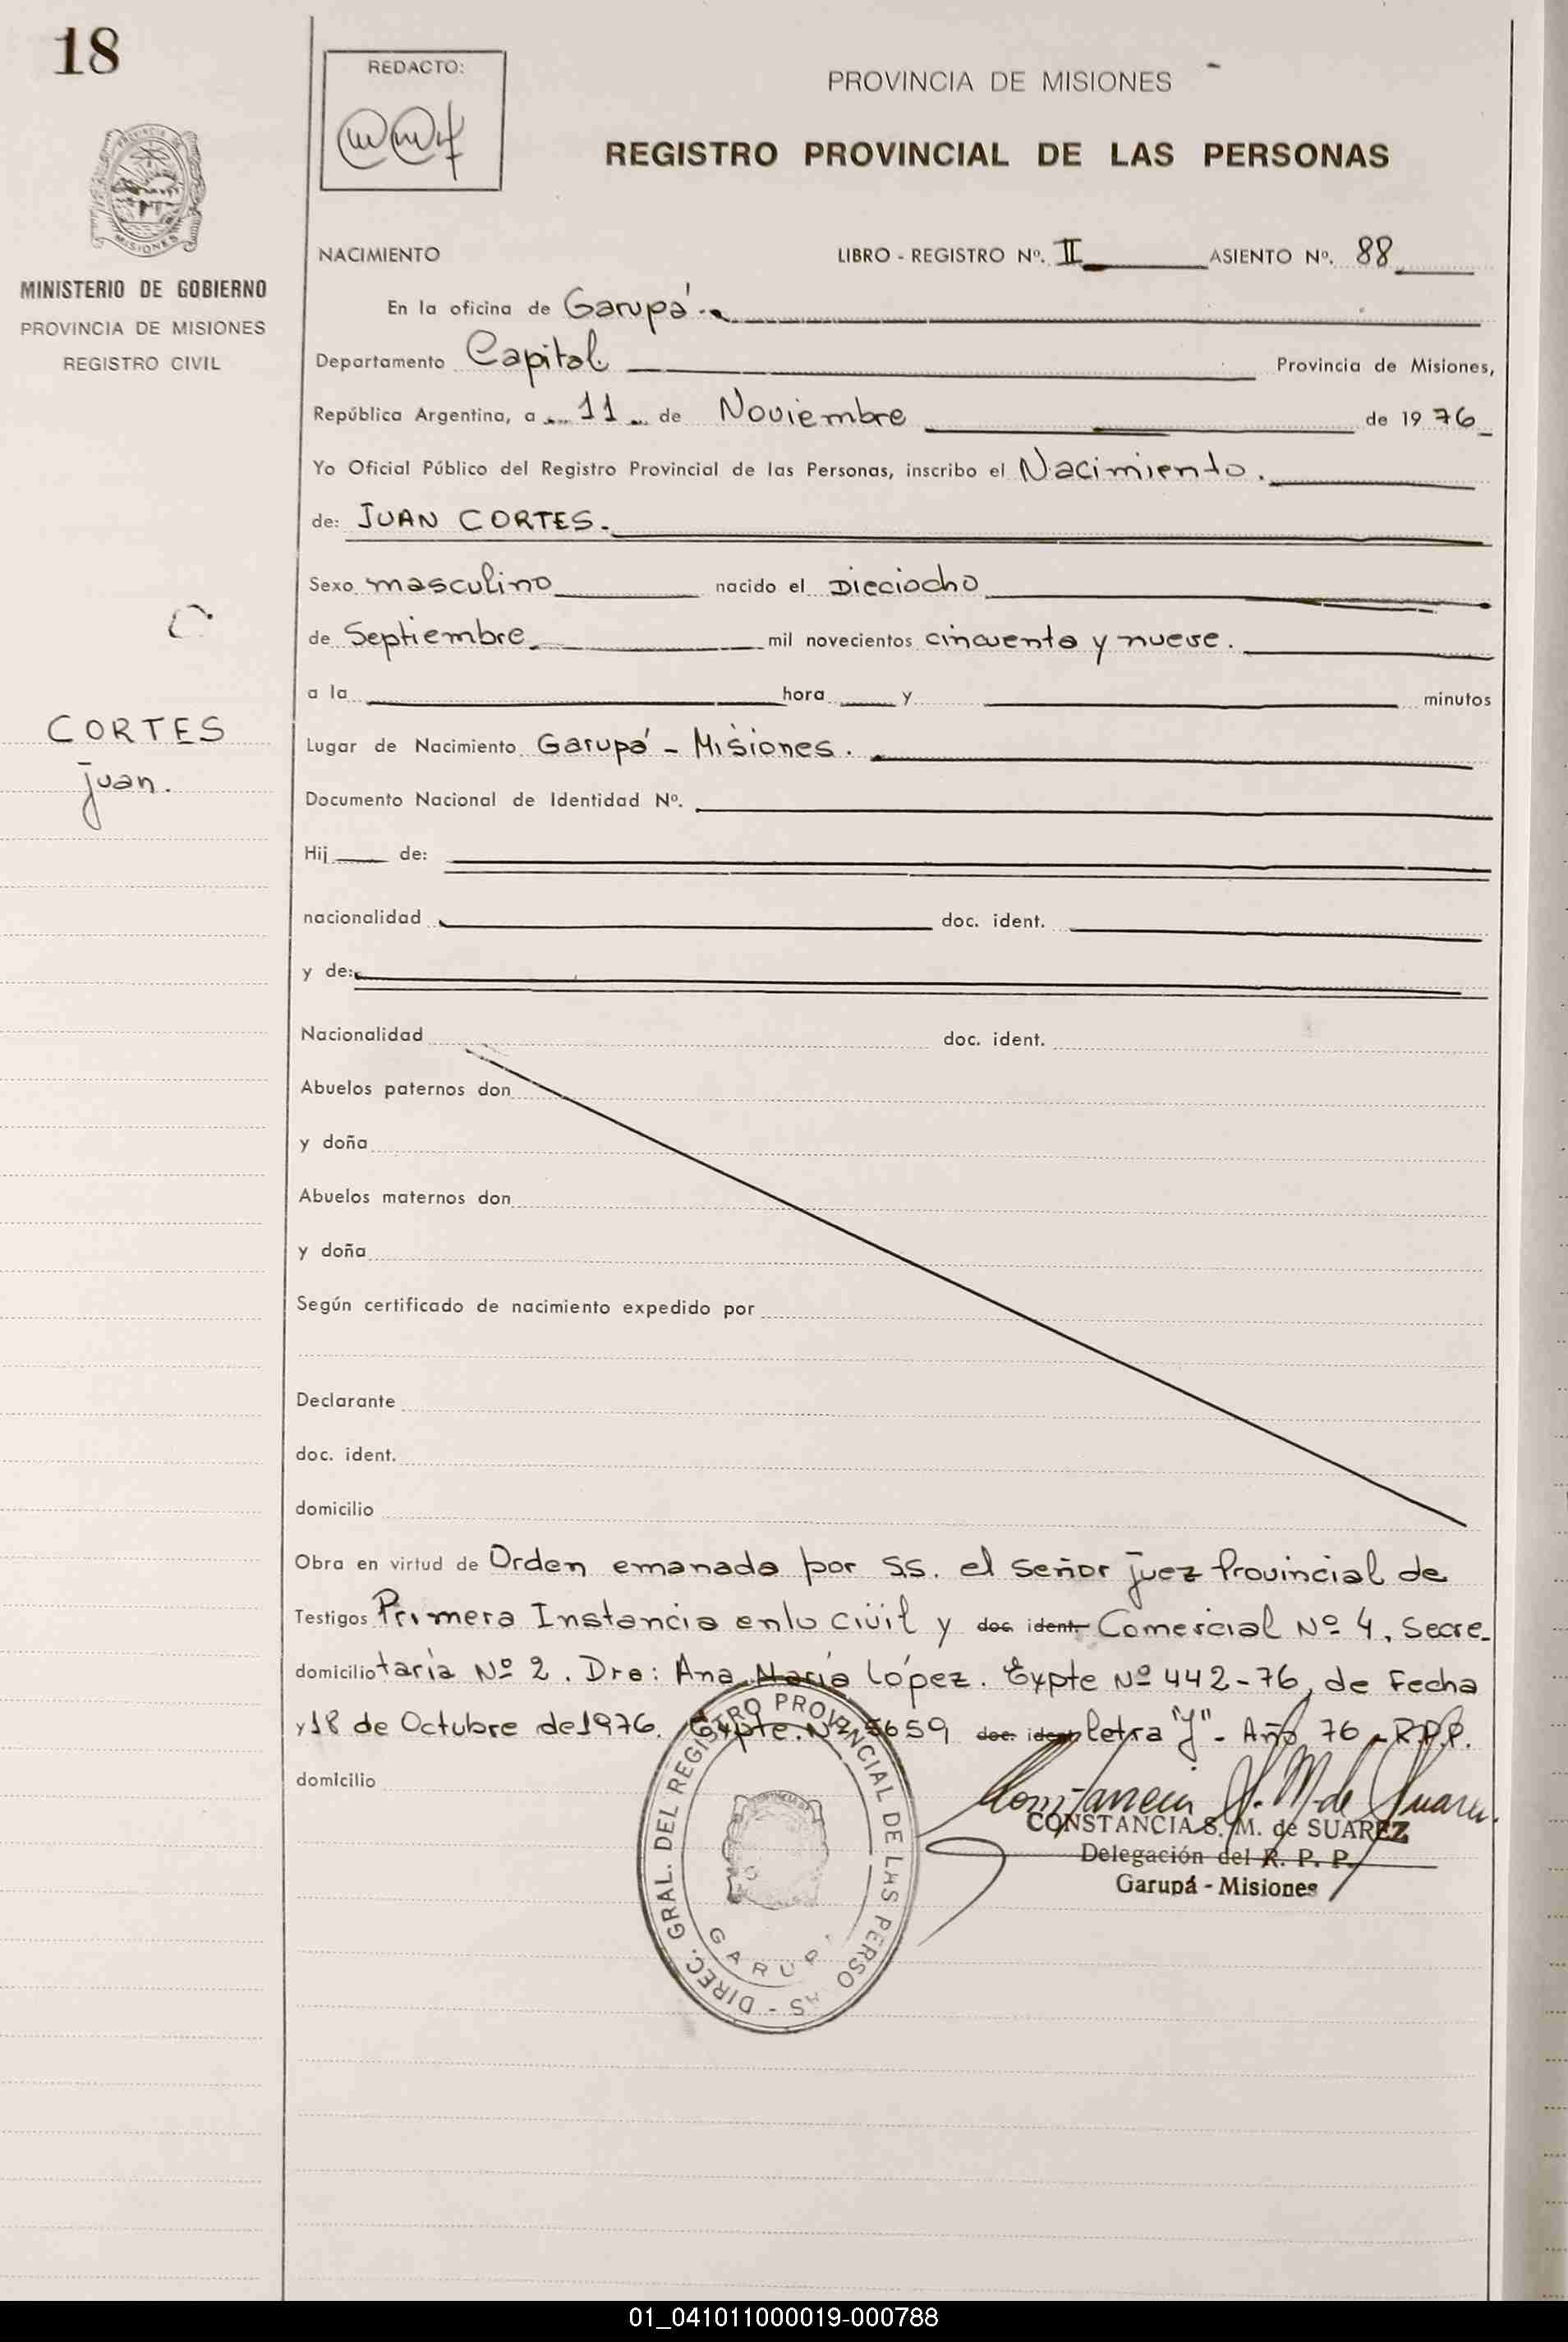 18
REDACTO:
PROVINCIA DE MISIONES
REGISTRO PROVINCIAL DE LAS PERSONAS
PROVINCIA DE
MISIONES
MINISTERIO DE GOBIERNO
PROVINCIA DE MISIONES
REGISTRO CIVIL
NACIMIENTO LIBRO - REGISTRO Nº. II ASIENTO Nº. 88
En la oficina de Garupá.
Departamento Capital Provincia de Misiones,
República Argentina, a 11 de Noviembre de 1976
Yo Oficial Público del Registro Provincial de las Personas, inscribo el Nacimiento.
de: JUAN CORTES.
Sexo masculino nacido el Dieciocho
de Septiembre mil novecientos cincuenta y nueve.
a la hora y minutos
CORTES
Juan.
Lugar de Nacimiento Garupá - Misiones.
Documento Nacional de Identidad Nº.
Hij de:
nacionalidad doc. ident.
y de:
Nacionalidad doc. ident.
Abuelos paternos don
y doña
Abuelos maternos don
y doña
Según certificado de nacimiento expedido por
Declarante
doc. ident.
domicilio
Obra en virtud de Orden emanada por SS. el señor Juez Provincial de
Testigos Primera Instancia enlo Civil y doc. ident. Comercial Nº 4, Secre-
domicilio taría Nº 2. Dra: Ana María López. Expte Nº 442-76, de Fecha
y 18 de Octubre de 1976. Expte. Nº 5659 doc. ident. letra "J" - Año 76 - R.P.P.
domicilio
DIREC. GRAL. DEL REGISTRO PROVINCIAL DE LAS PERSONAS -
GARUPA
Constancia S. M. de Suarez
CONSTANCIA S. M. de SUAREZ
Delegación del R. P. P.
Garupá - Misiones
01_041011000019-000788